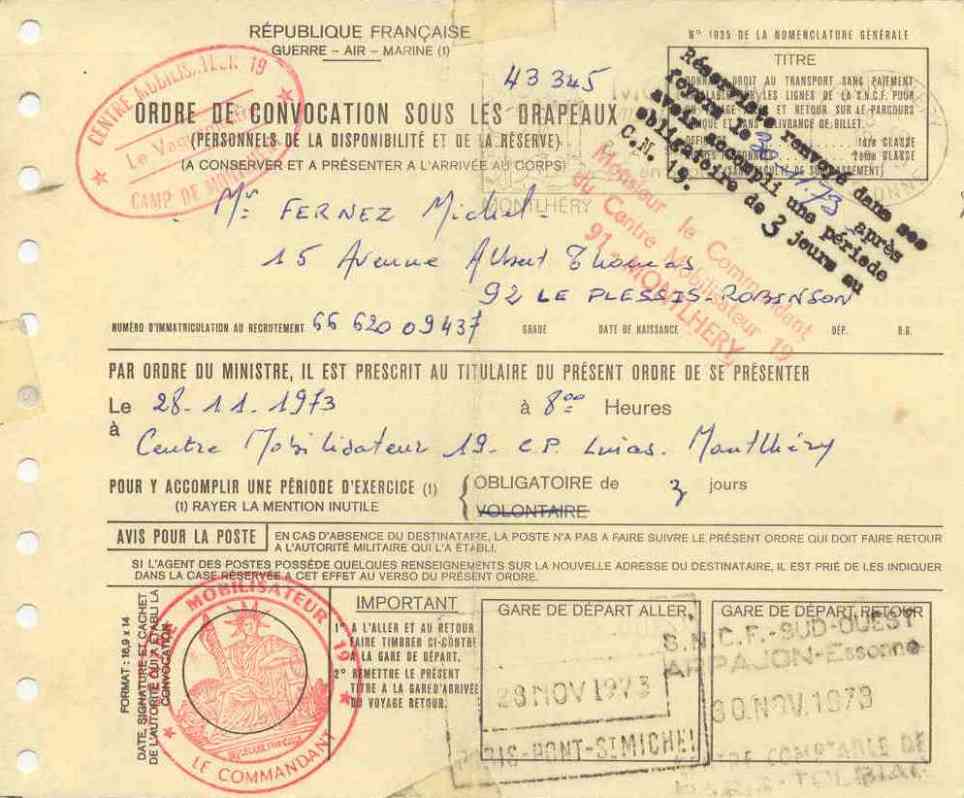 RÉPUBLIQUE FRANÇAISE
GUERRE – AIR – MARINE (1)
N° 1035 DE LA NOMENCLATURE GÉNÉRALE
TITRE
DROIT AU TRANSPORT SANS PAIEMENT
LES LIGNES DE LA S.N.C.F. POUR
ET RETOUR SUR LE PARCOURS
DÉLIVRANCE DE BILLET.
1ère CLASSE
2ème CLASSE
CENTRE MOBILISATEUR 19
CAMP DE
43345
ORDRE DE CONVOCATION SOUS LES DRAPEAUX
(PERSONNELS DE LA DISPONIBILITÉ ET DE LA RÉSERVE)
(A CONSERVER ET A PRÉSENTER A L'ARRIVÉE AU CORPS)
Réserviste renvoyé dans ses
foyers le 30.11.73 après
avoir accompli une période
obligatoire de 3 jours au
C.M. 19.
MONTLHÉRY
Monsieur le Commandant
du Centre Mobilisateur 19
91 - MONTLHERY
Mr FERNEZ Michel
15 Avenue Albert Thomas
92 LE PLESSIS-ROBINSON
NUMÉRO D'IMMATRICULATION AU RECRUTEMENT 66 620 09437 GRADE DATE DE NAISSANCE DÉP. B.R.
PAR ORDRE DU MINISTRE, IL EST PRESCRIT AU TITULAIRE DU PRÉSENT ORDRE DE SE PRÉSENTER
Le 28.11.1973 à 8 00 Heures
à Centre Mobilisateur 19 - C.P. Linas. Montlhéry
POUR Y ACCOMPLIR UNE PÉRIODE D'EXERCICE (1) OBLIGATOIRE de 3 jours
(1) RAYER LA MENTION INUTILE VOLONTAIRE
AVIS POUR LA POSTE EN CAS D'ABSENCE DU DESTINATAIRE, LA POSTE N'A PAS A FAIRE SUIVRE LE PRÉSENT ORDRE QUI DOIT FAIRE RETOUR
A L'AUTORITÉ MILITAIRE QUI L'A ÉTABLI.
SI L'AGENT DES POSTES POSSÈDE QUELQUES RENSEIGNEMENTS SUR LA NOUVELLE ADRESSE DU DESTINATAIRE, IL EST PRIÉ DE LES INDIQUER
DANS LA CASE RÉSERVÉE A CET EFFET AU VERSO DU PRÉSENT ORDRE.
FORMAT : 16,9 x 14
DATE, SIGNATURE ET CACHET
DE L'AUTORITÉ QUI A ÉTABLI LA
CONVOCATION
MOBILISATEUR 19
LE COMMANDANT
IMPORTANT
1° A L'ALLER ET AU RETOUR
FAIRE TIMBRER CI-CONTRE
A LA GARE DE DÉPART.
2° REMETTRE LE PRÉSENT
TITRE A LA GARE D'ARRIVÉE
DU VOYAGE RETOUR.
GARE DE DÉPART ALLER
28 NOV 1973
PARIS-PONT-ST MICHEL
GARE DE DÉPART RETOUR
S.N.C.F.-SUD-OUEST
ARPAJON-Essonne
30.NOV.1973
COMPTABLE DE